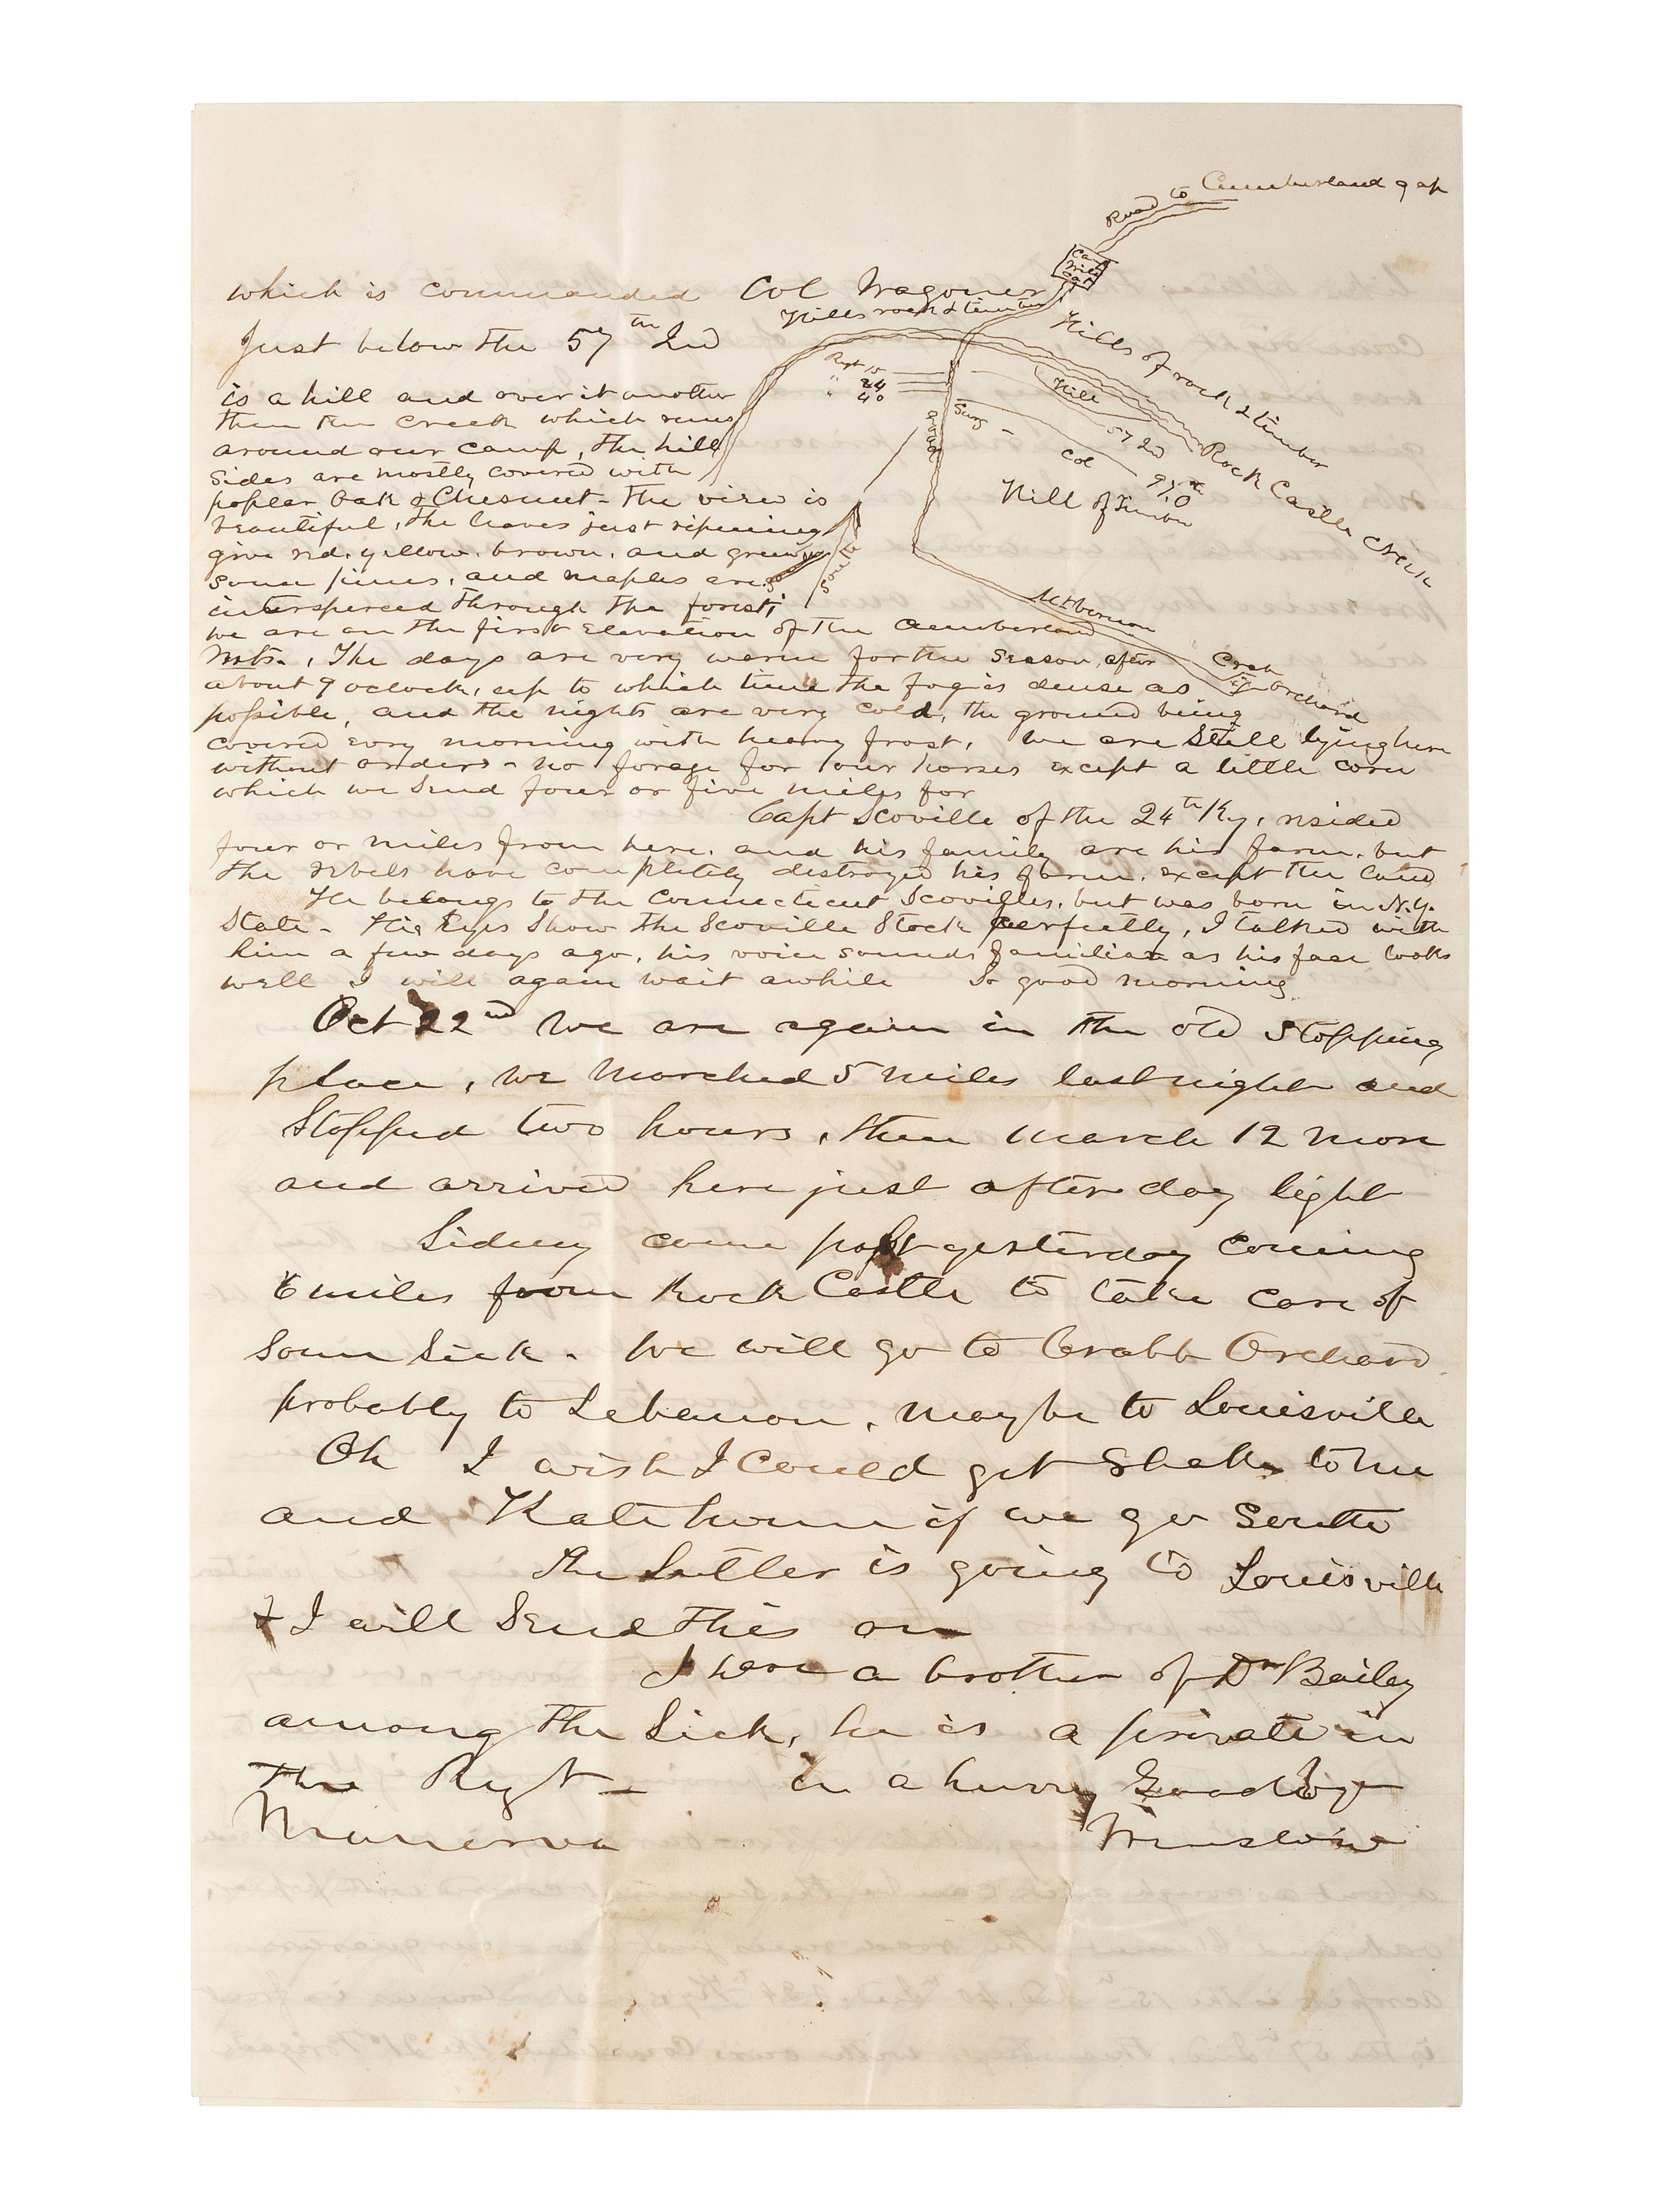 Road to Cumberland gap
Camp
Wild
Cat
which is commanded Col Wagoner
Hills rock & timber
Just below the 57th Ind
Hills of rock & timber
Regt 15
" 24
" 40
Hill
57 Ind
Road
Surg
Col
97th O
Hill of Timber
Rock Castle Creek
South
Mt Vernon
Crab
Orchard
is a hill and over it another
then the Creek which runs
around our camp, the hill
sides are mostly covered with
poplar Oak & Chesnut - the view is
beautiful, the leaves just ripening
give red, yellow, brown, and green
some pines, and maples are
interspersed through the forest,
we are on the first Elevation of the Cumberland
Mts., The days are very warm for the Season, after
about 9 oclock, up to which time the fog is dense as
possible, and the nights are very cold, the ground being
covered evry morning with heavy frost, we are still lying here
without orders - no forage for our horses except a little corn
which we send four or five miles for
Capt Scoville of the 24th Ky, resided
four or miles from here, and his family are his farm, but
the rebels have completely destroyed his farm, except the land
He belongs to the Connecticut Scovilles, but was born in N.Y.
State - His Eyes Show the Scoville Stock perfectly, I talked with
him a few days ago, his voice sounds familiar as his face looks
well I will again wait awhile So good morning
Oct 22nd we are again in the old stopping
place, we marched 5 miles last night and
Stopped two hours, then march 12 more
and arrived here just after day light
Sidney came past yesterday coming
6 miles from Rock Castle to take care of
some sick - We will go to Crabb Orchard
probably to Lebanon, may be to Louisville
Oh I wish I could get to me
and Kate home if we go South
The Sutler is going to Louisville
& I will send this on
I have a brother of Dr Bailey
among the Sick, he is a private in
the Regt - in a hurry Good bye
Minerva Winslow